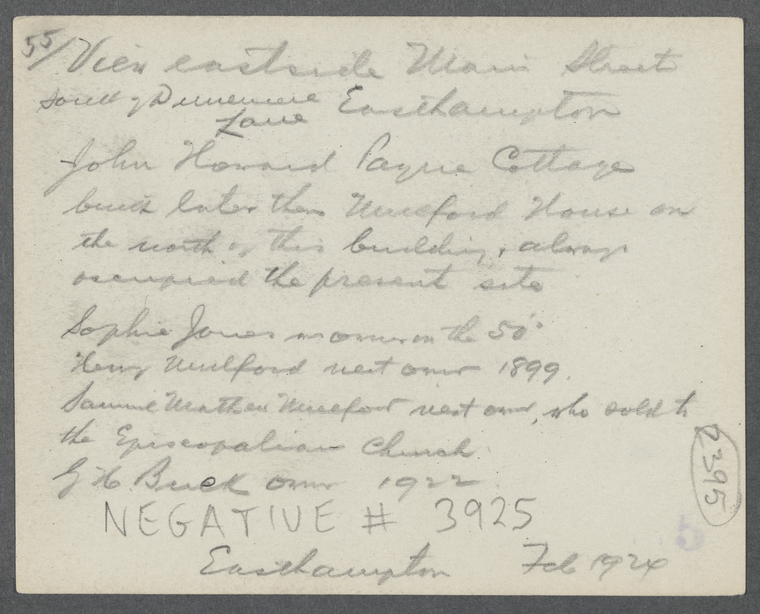 55/ View eastside Main Street
South of Dunemere Easthampton
Lane
John Howard Payne Cottage
built later than Mulford House on
the north of this building, always
occupied the present site
Sophie Jones was owner in the 50's
Henry Mulford next owner 1899.
Samuel Mather Mulford next owner, who sold to
the Episcopalian Church
G H Buek owner 1922
NEGATIVE # 3925
Easthampton Feb 1924
2395
5